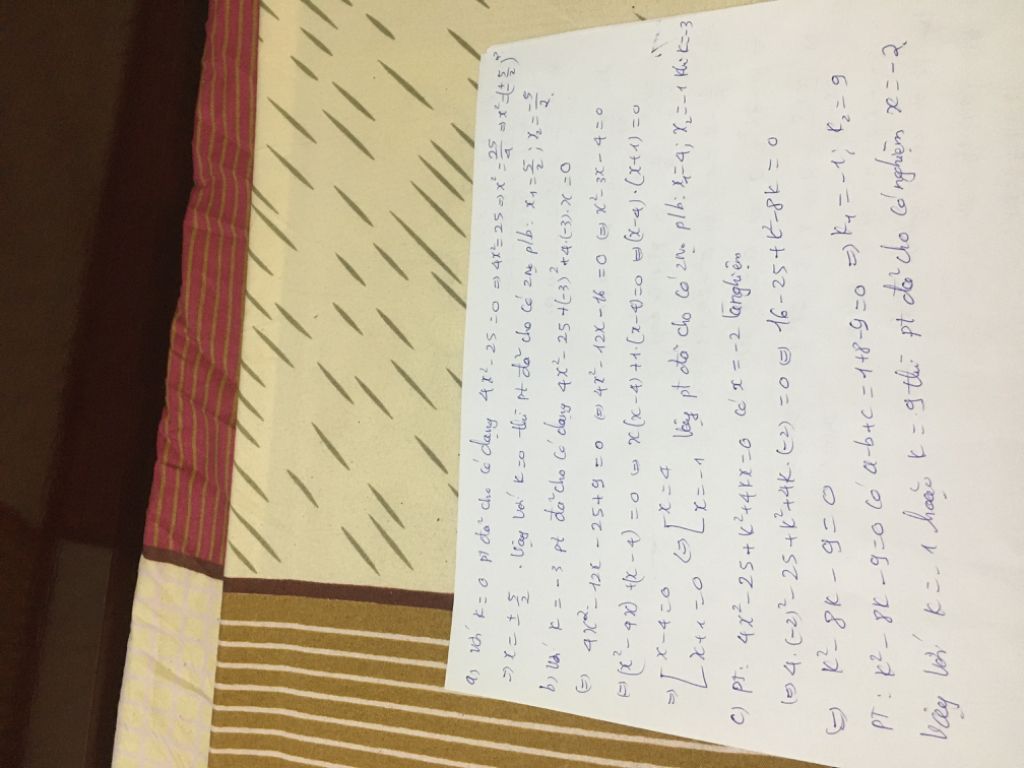 a) Với K = 0 pt đã cho có dạng 4x² - 25 = 0 ⇒ 4x² = 25 ⇒ x² = 25/4 ⇒ x² = (± 5/2)²
⇒ x = ± 5/2 . Vậy với K=0 thì pt đã cho có 2no p/b: x₁ = 5/2 ; x₂ = -5/2.
b) Với K = -3 pt đã cho có dạng 4x² - 25 + (-3)² + 4.(-3).x = 0
⇔ 4x² - 12x - 25 + 9 = 0 ⇔ 4x² - 12x - 16 = 0 ⇔ x² - 3x - 4 = 0
⇔ (x² - 4x) + (x - 4) = 0 ⇔ x(x-4) + 1.(x-4) = 0 ⇔ (x-4).(x+1) = 0
⇒ [ x - 4 = 0 ⇔ [ x = 4 Vậy pt đã cho có 2no p/b: x₁ = 4; x₂ = -1 khi K = -3
x + 1 = 0 x = -1
c) PT: 4x² - 25 + K² + 4Kx = 0 có x = -2 là nghiệm
⇔ 4.(-2)² - 25 + K² + 4K.(-2) = 0 ⇔ 16 - 25 + K² - 8K = 0
⇔ K² - 8K - 9 = 0
PT: K² - 8K - 9 = 0 có a - b + c = 1 + 8 - 9 = 0 ⇒ K₁ = -1; K₂ = 9
Vậy với K = -1 hoặc K = 9 thì pt đã cho có nghiệm x = -2